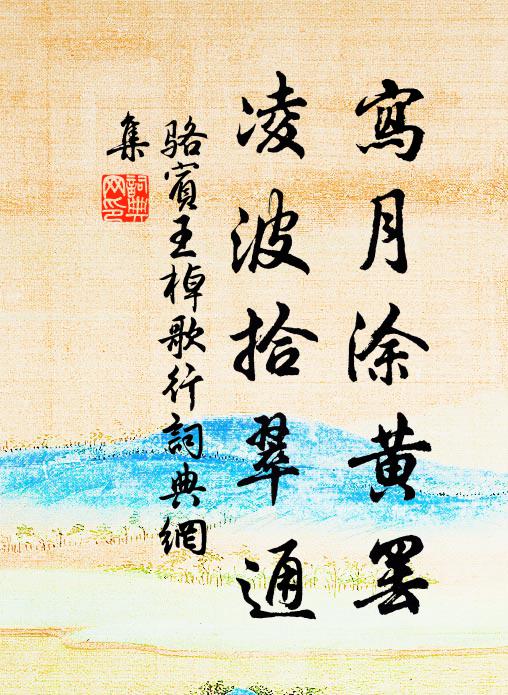 寫月涂黃罷
凌波拾翠通
駱賓王棹歌行詞典網
集
詞典
网印